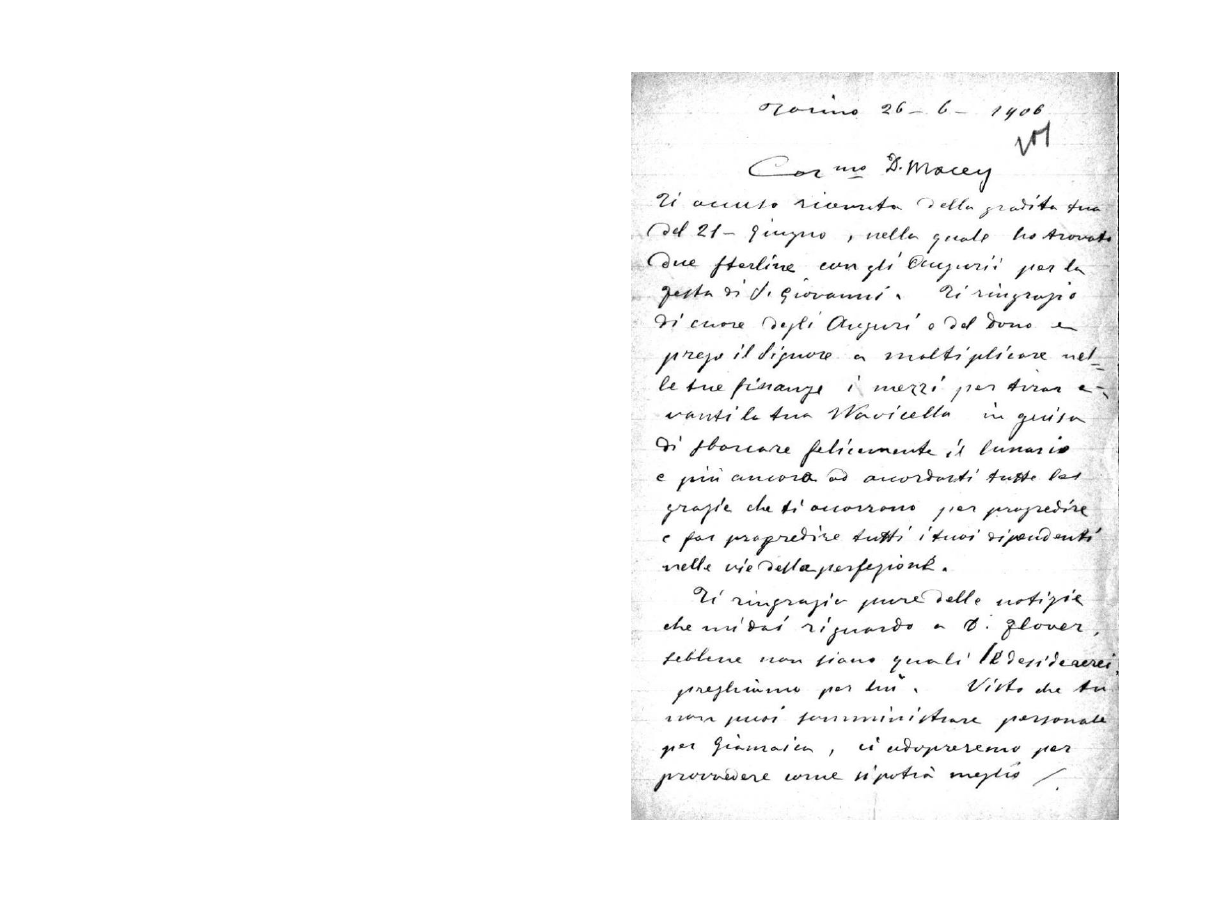 Torino 26 - 6 - 1906
Car.mo D. Macey
Ti accuso ricevuta della gradita tua
del 21 - Giugno, nella quale ho trovato
due sterline con gli Augurii per la
festa di S. Giovanni. Ti ringrazio
di cuore degli Auguri e del dono e
prego il Signore a moltiplicare nel=
le tue finanze i mezzi per tirar a=
vanti la tua Navicella in guisa
di sbarcare felicemente il lunario
e più ancora ad accordarti tutte le
grazie che ti occorrono per progredire
e far progredire tutti i tuoi dipendenti
nelle vie della perfezione.
Ti ringrazio pure delle notizie
che mi dai riguardo a D. Glover,
sebbene non siano quali le desidererei,
preghiamo per lui. Visto che tu
non puoi somministrare personale
per Giamaica, ci adopreremo per
provvedere come si potrà meglio